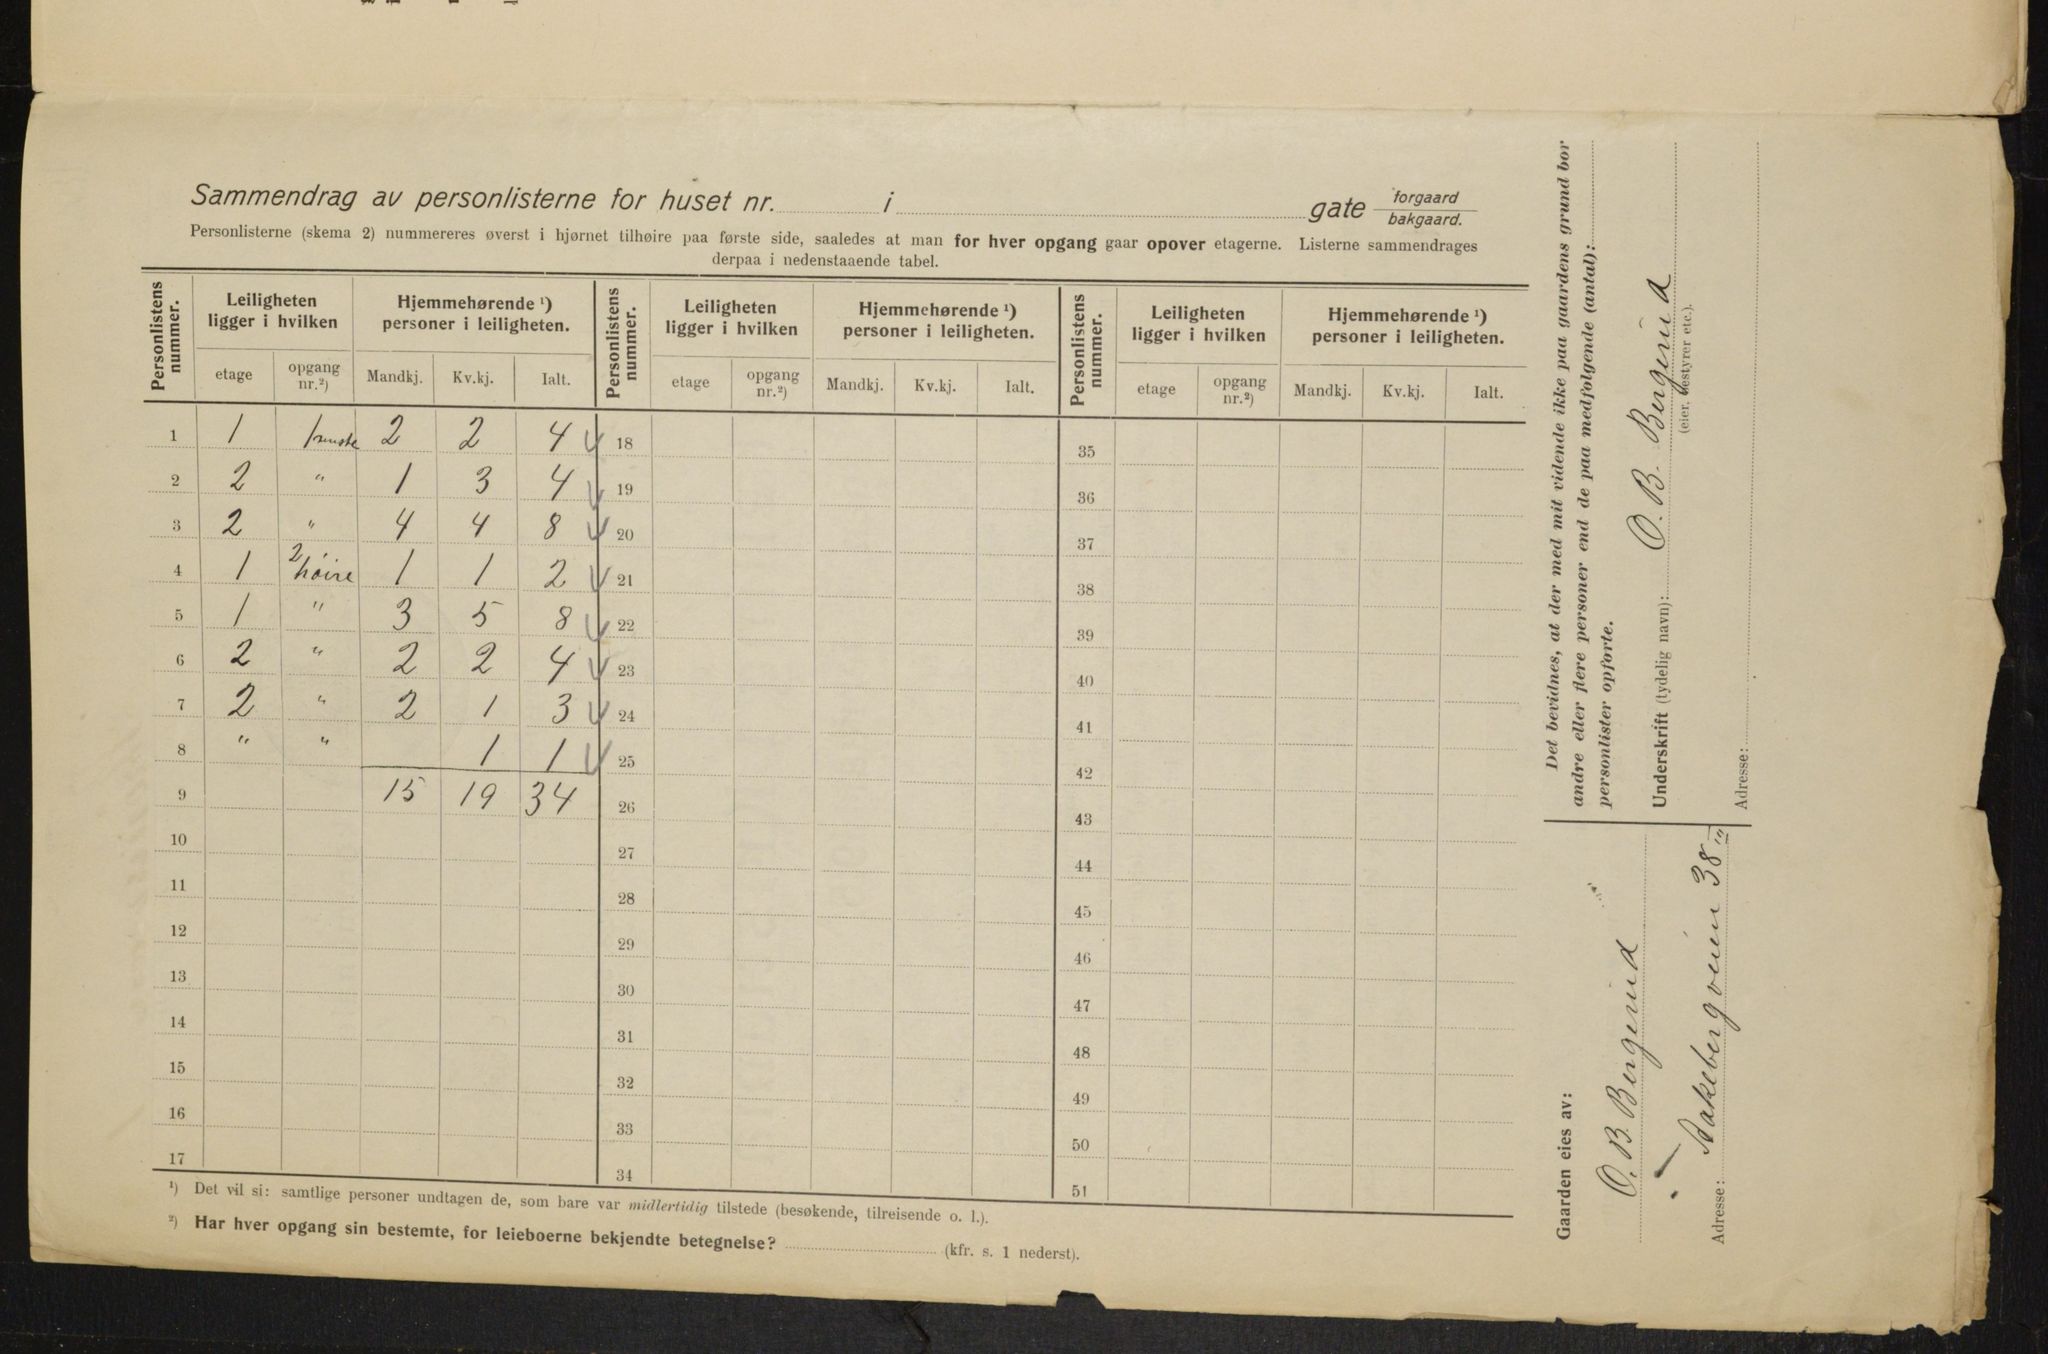 Sammendrag av personlisterne for huset nr. i gate forgaard bakgaard.
Personlisterne (skema 2) nummereres øverst i hjørnet tilhøire paa første side, saaledes at man for hver opgang gaar opover etagerne. Listerne sammendrages
derpaa i nedenstaaende tabel.
Personlistens nummer. Leiligheten ligger i hvilken Hjemmehørende ¹) personer i leiligheten. Personlistens nummer. Leiligheten ligger i hvilken Hjemmehørende ¹) personer i leiligheten. Personlistens nummer. Leiligheten ligger i hvilken Hjemmehørende ¹) personer i leiligheten.
etage opgang nr.²) Mandkj. Kv.kj. Ialt. etage opgang nr.²) Mandkj. Kv.kj. Ialt. etage opgang nr.²) Mandkj. Kv.kj. Ialt.
1 1 1 2 2 4 18 35
2 2 " 1 3 4 19 36
3 2 " 4 4 8 20 37
4 1 2 høire 1 1 2 21 38
5 1 " 3 5 8 22 39
6 2 " 2 2 4 23 40
7 2 " 2 1 3 24 41
8 " " 1 1 25 42
9 15 19 34 26 43
10 27 44
11 28 45
12 29 46
13 30 47
14 31 48
15 32 49
16 33 50
17 34 51
¹) Det vil si: samtlige personer undtagen de, som bare var midlertidig tilstede (besøkende, tilreisende o. l.).
²) Har hver opgang sin bestemte, for leieboerne bekjendte betegnelse? (kfr. s. 1 nederst).
Det bevidnes, at der med mit vidende ikke paa gaardens grund bor
andre eller flere personer end de paa medfølgende (antal):
personlister opførte.
Underskrift (tydelig navn): O. B. Bergerud
(eier, bestyrer etc.).
Adresse:
Gaarden eies av:
O. B. Bergerud
Adresse: Aakebergveien 38